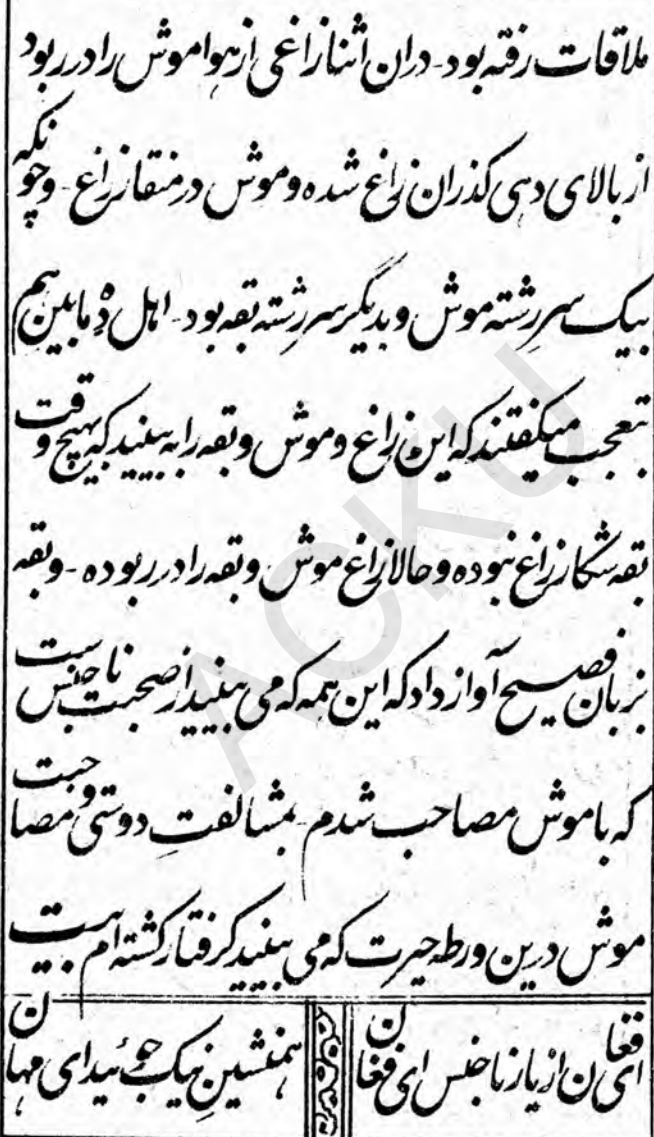 ملاقات رفته بود - دران اثنا زاغی از هوا موش را در ربود
از بالای دهی گذران زاغ شده و موش در منقار زاغ - و چونکه
بیک سر رشته موش و بدیگر سر رشته بقه بود - اهل ده مابین هم
بتعجب میگفتند که این زاغ و موش و بقه را به بینید که هیچ وقت
بقه شکار زاغ نبوده و حالا زاغ موش و بقه را در ربوده - و بقه
بزبان فصیح آواز داد که این همه که می بینید از صحبت ناجنس است
که با موش مصاحب شدم بمتالفت دوستی و مصاحبت
موش درین ورطه حیرت که می بینید گرفتار گشته ام بیت
ای فغان از یار ناجنس ای فغان همنشین نیک جوئید ای مهان
ACKU